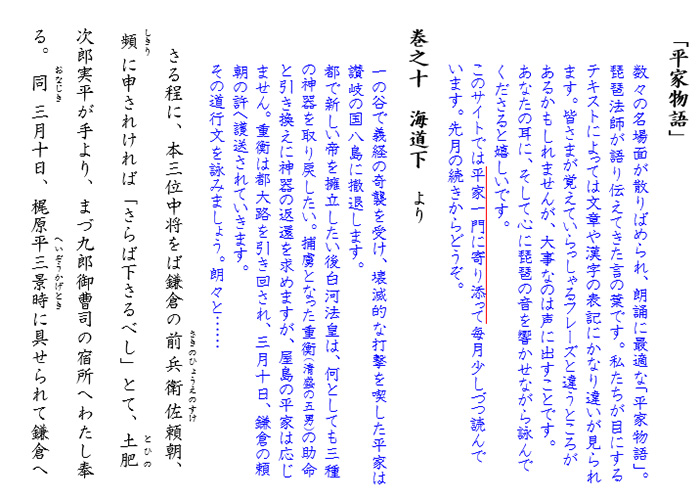 「平家物語」
数々の名場面が散りばめられ、朗誦に最適な「平家物語」。
琵琶法師が語り伝えてきた言の葉です。私たちが目にする
テキストによっては文章や漢字の表記にかなり違いが見られ
ます。皆さまが覚えていらっしゃるフレーズと違うところが
あるかもしれませんが、大事なのは声に出すことです。
あなたの耳に、そして心に琵琶の音を響かせながら詠んで
くださると嬉しいです。
このサイトでは平家一門に寄り添って毎月少しづつ読んで
います。先月の続きからどうぞ。
巻之十　海道下　より
一の谷で義経の奇襲を受け、壊滅的な打撃を喫した平家は
讃岐の国八島に撤退します。
都で新しい帝を擁立したい後白河法皇は、何としても三種
の神器を取り戻したい。捕虜となった重衡(清盛の五男)の助命
と引き換えに神器の返還を求めますが、屋島の平家は応じ
ません。重衡は都大路を引き回され、三月十日、鎌倉の頼
朝の許へ護送されていきます。
その道行文を詠みましょう。朗々と……
さる程に、本三位中将をば鎌倉の前兵衛佐頼朝、
さきのひょうえのすけ
頻に申されければ「さらば下さるべし」とて、土肥
しきり
とひの
次郎実平が手より、まづ九郎御曹司の宿所へわたし奉
る。同三月十日、梶原平三景時に具せられて鎌倉へ
おなじき
へいぞうかげとき